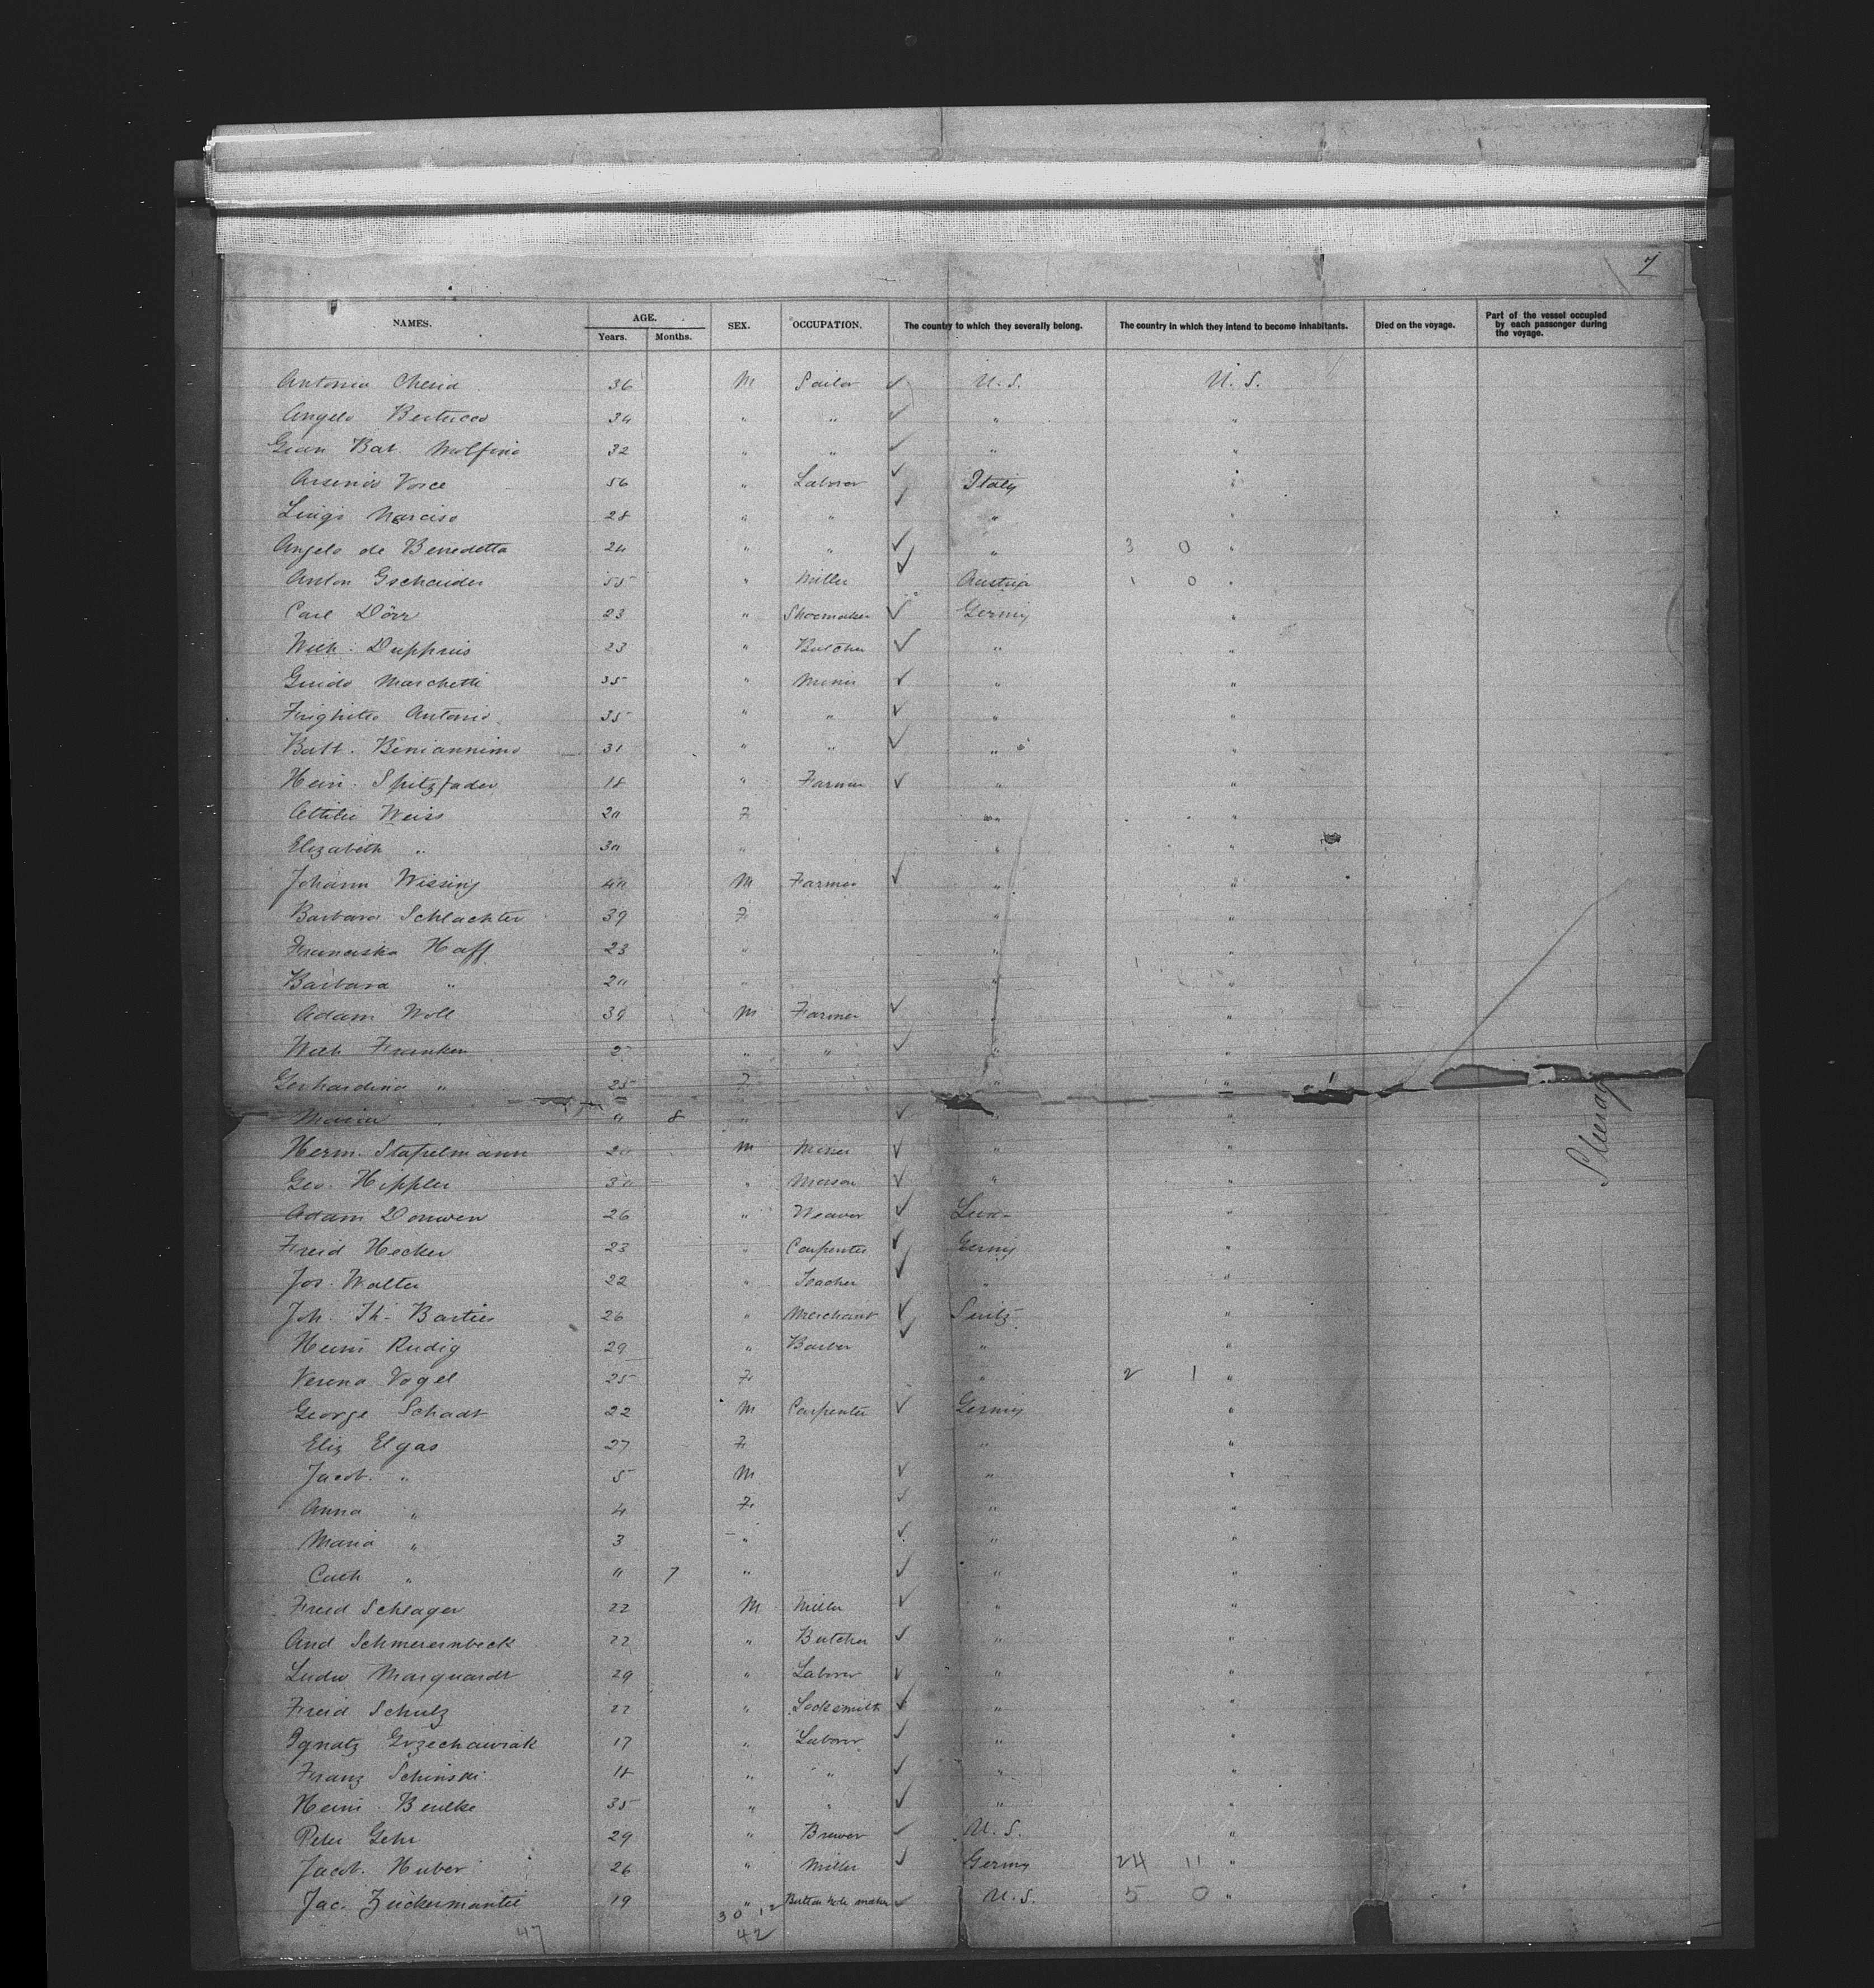 7
NAMES. AGE. Years. Months. SEX. OCCUPATION. The country to which they severally belong. The country in which they intend to become inhabitants. Died on the voyage. Part of the vessel occupied by each passenger during the voyage.
Antonio 36 M Sailor ✓ U. S. U. S.
Angelo Bertucco 34 " " ✓ " "
Gian Bat. Molfino 32 " " ✓ " "
Arsenio Voice 56 " Laborer ✓ Italy "
Luigi Narciso 28 " " ✓ " "
Angelo de Benedetto 24 " " ✓ " 3 0 "
Anton Gschaider 55 " Miller ✓ Austria 1 0 "
Carl Dörr 23 " Shoemaker ✓ Germy "
Wilh. Dupphuis 23 " Butcher ✓ " "
Guido Marchetti 35 " Miner ✓ " "
Antonio 35 " " ✓ " "
Batt. Beniannimo 31 " " ✓ " "
Heinr. Spitzfaden 18 " Farmer ✓ " "
Weiss 20 F " "
Elizabeth " 30 " " "
Johann Wissing 40 M Farmer ✓ " "
Barbara Schlachter 39 F " "
Franciska Haff 23 " " "
Barbara " 20 " " "
Adam Noll 39 M Farmer ✓ " "
Wilh Franken " " ✓ " "
Gerhardina " 25 F " "
Maria " " 8 " ✓ " "
Herm. Stapelmann 20 M Miner ✓ " "
Geo. Hippler 30 " Mason ✓ " "
Adam Donwen 26 " Weaver ✓ Lux- "
Freid Hecker 23 " Carpenter ✓ Germy "
Jos. Walter 22 " Teacher ✓ " "
Joh. Th. Barties 26 " Merchant ✓ Suitz- "
Heinr Rudig 29 " Barber ✓ " "
Verena Vogel 25 F " 2 1 "
George Schadt 22 M Carpenter ✓ Germy "
Eliz Elgas 27 F " "
Jacob. " 5 M ✓ " "
Anna " 4 F ✓ " "
Maria " 3 " ✓ " "
Cath " " 7 " ✓ " "
Freid Schlager 22 M Miller ✓ " "
And Schmerernbeck 22 " Butcher ✓ " "
Ludw Marquardt 29 " Laborer ✓ " "
Freid Schulz 22 " Locksmith ✓ " "
Ignatz Grzechawiak 17 " Laborer ✓ " "
Franz Schinski 18 " " ✓ " "
Heinr. Beulke 35 " " ✓ " "
Peter Gehr 29 " Brewer ✓ U. S. "
Jacob. Huber 26 " Miller ✓ Germy 24 11 "
Jac. Zuckermantel 19 " Button hole maker ✓ U. S. 5 0 "
30 12
47 42
Steerage